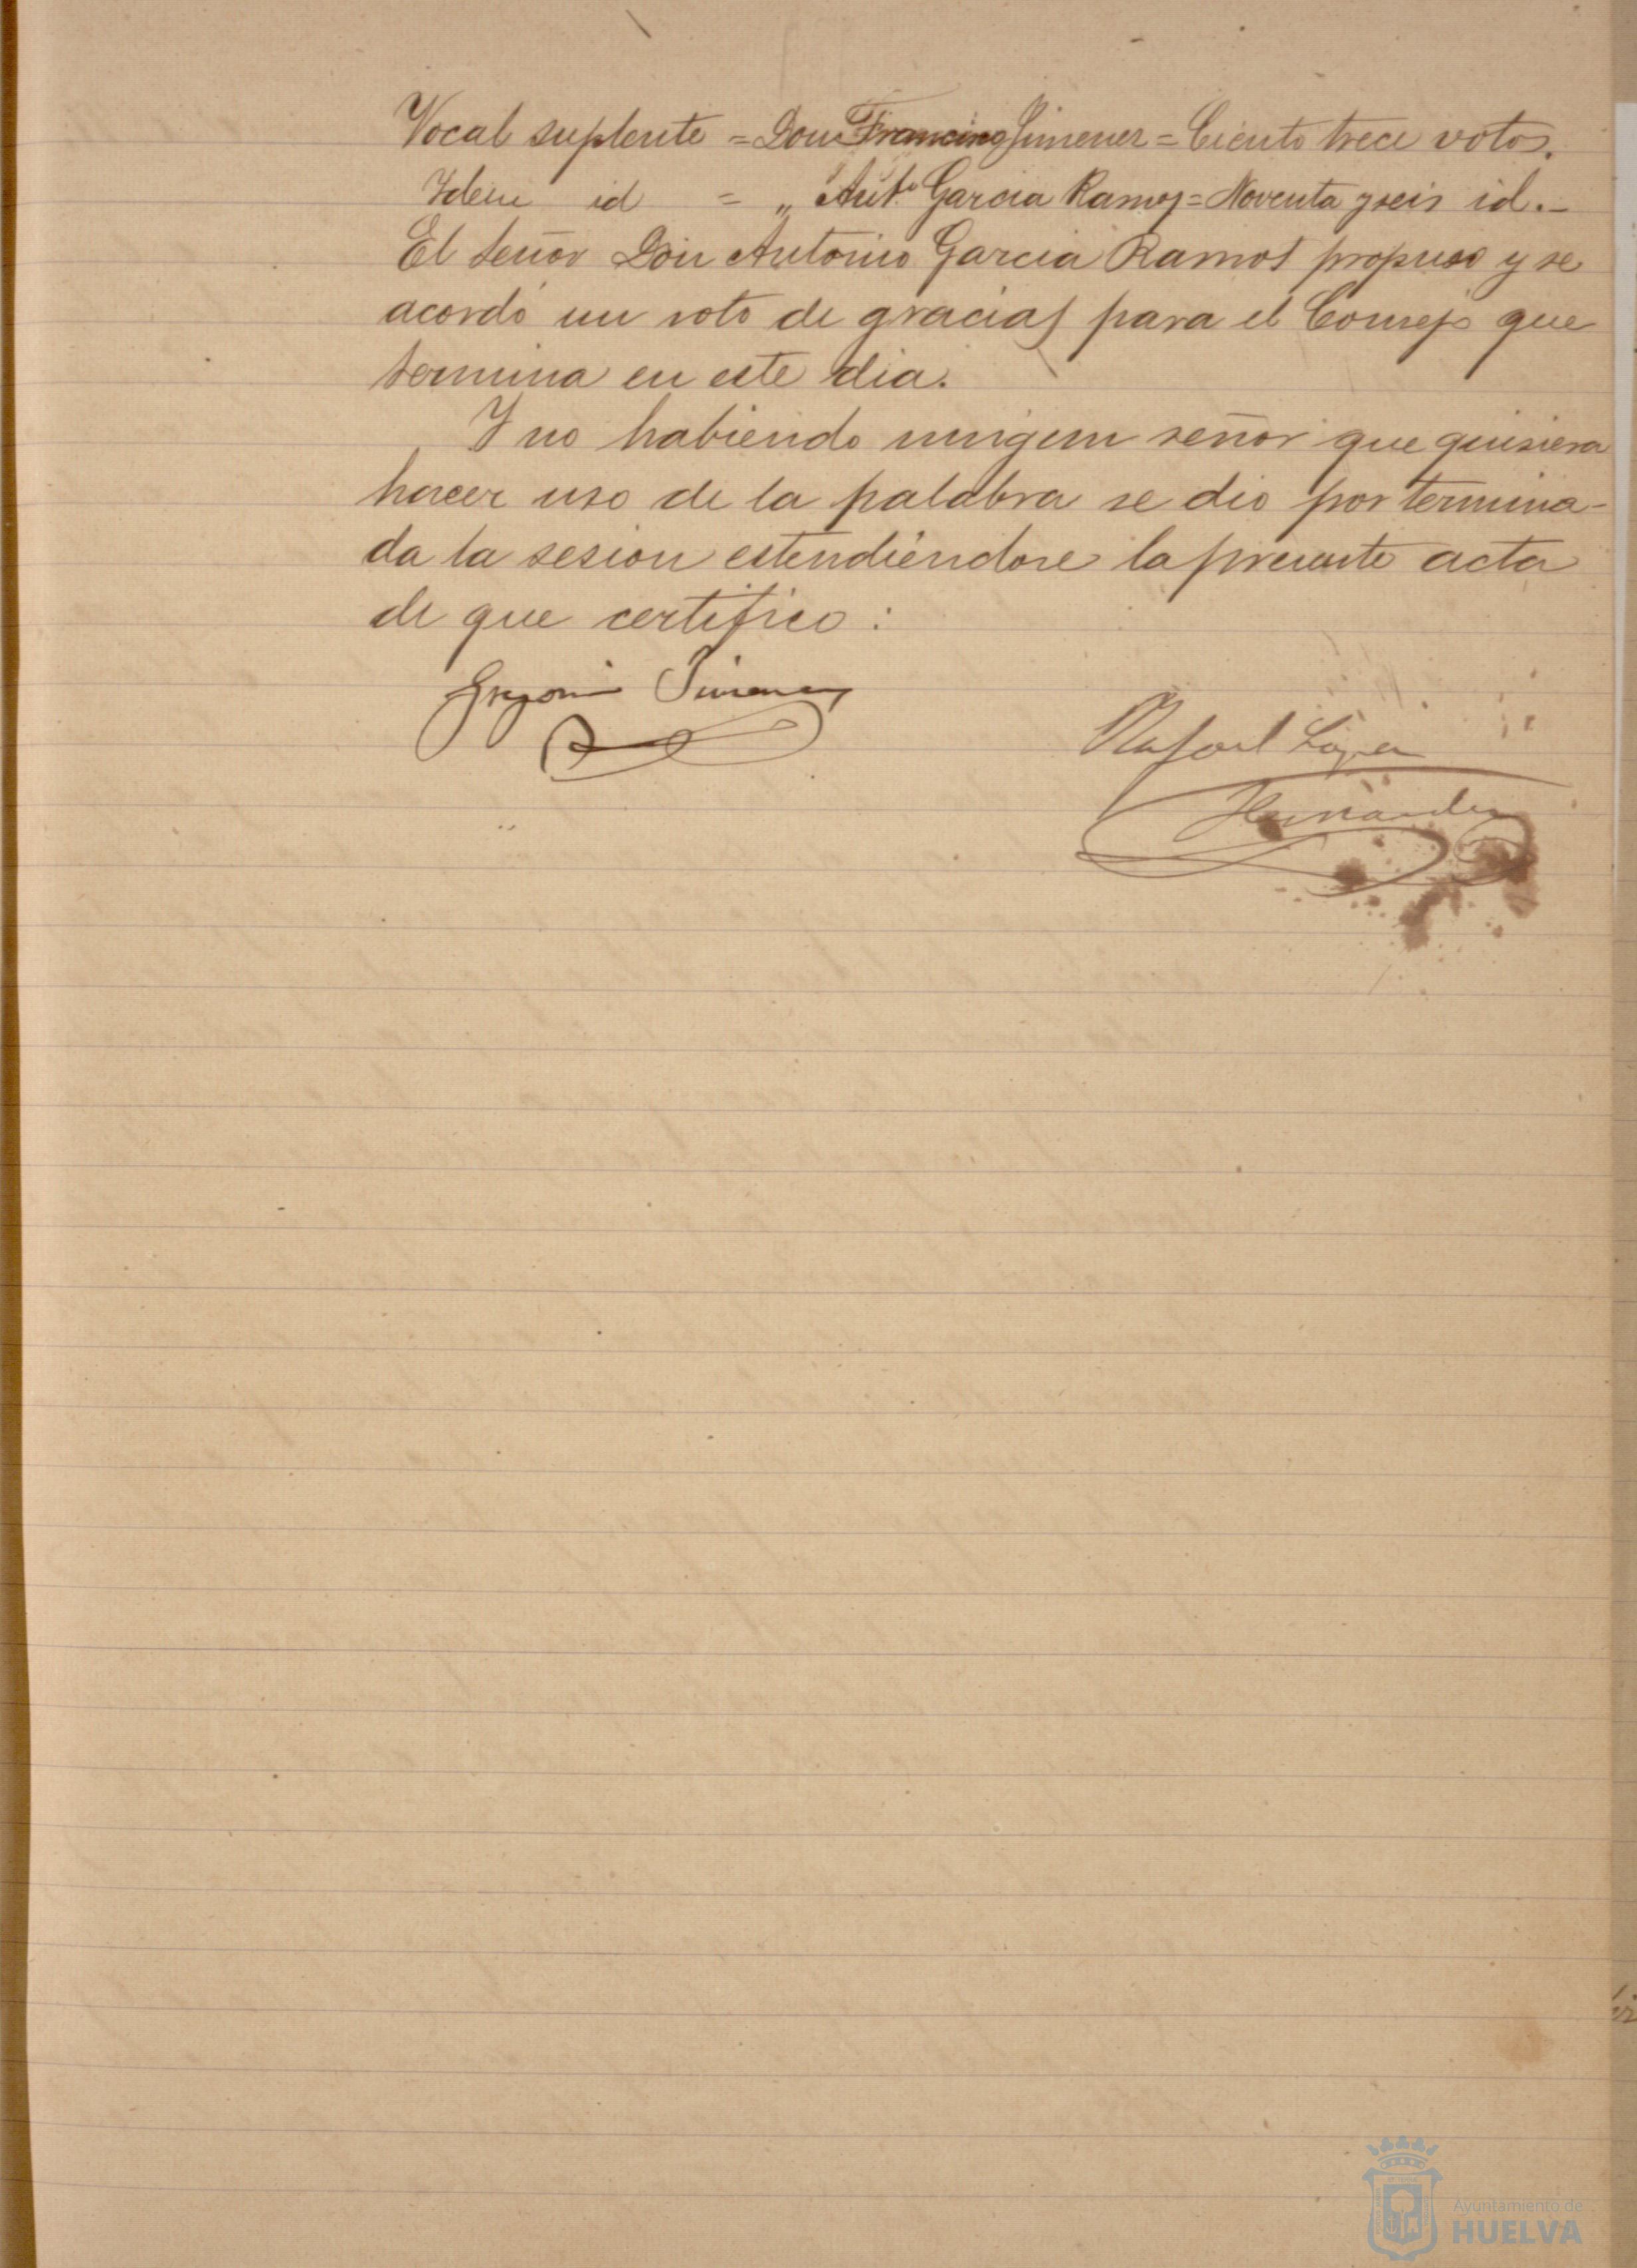 Vocal suplente = Don Francisco Jimenez = Ciento trece votos.
Idem id = „ Antº Garcia Ramos = Noventa y seis id. –
El Señor Don Antonio Garcia Ramos propuso y se
acordó un voto de gracias para el Consejo que
termina en este dia.
Y no habiendo ningun señor que quisiera
hacer uso de la palabra se dio por termina-
da la sesion estendiéndose la presente acta
de que certifico:
Gregorio Jimenez
Rafael Lopez
Hernandez
Ayuntamiento de
HUELVA